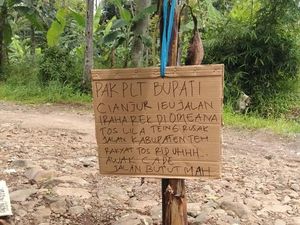 PAK PLT BUPATI
CIANJUR IEU JALAN
IRAHA REK DI OMEAN A
TOS LILA TEING RUSAK
JALAN KABUPATEN TEH
RAKYAT TOS RIDUHHH..
AWAK CAPE
JALAN BUTUT MAH